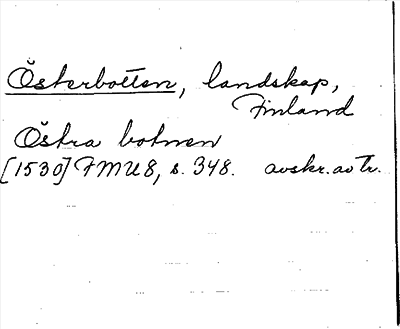 Österbotten, landskap,
Finland
Östra botnen
[1530] FMU 8, s. 348. avskr. av tr.